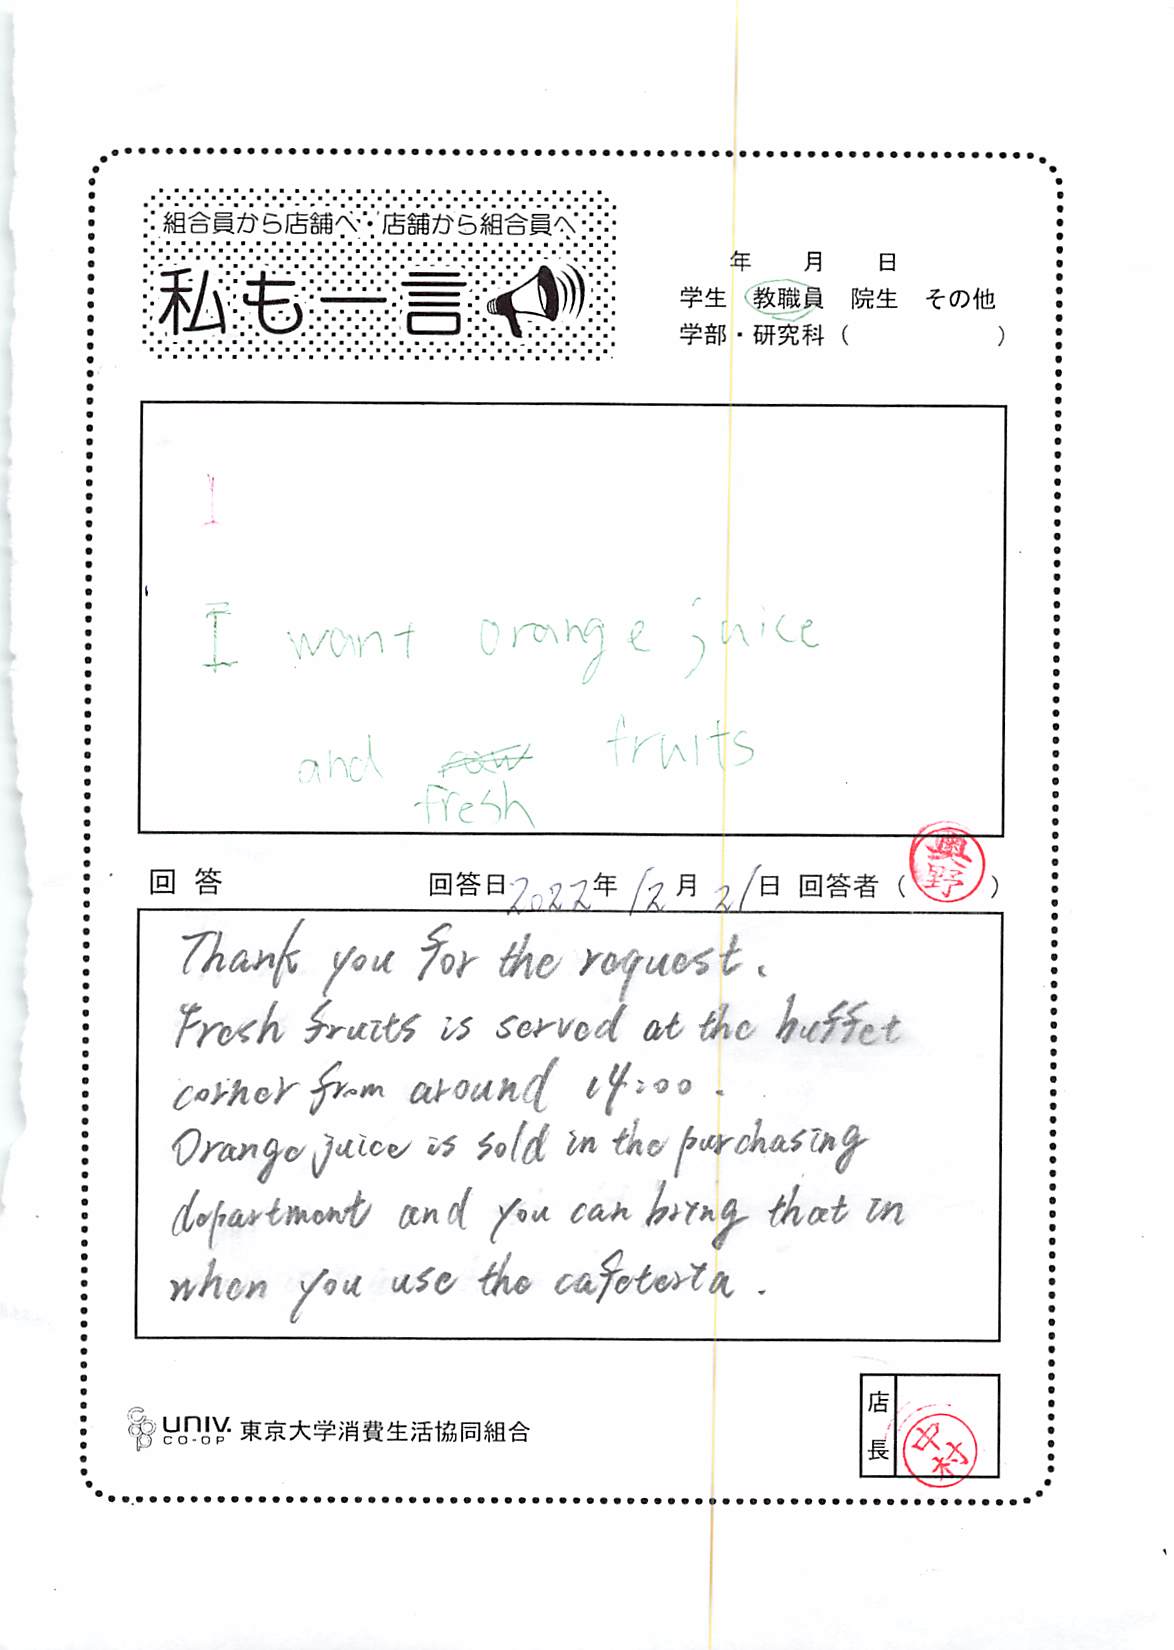 組合員から店舗へ・店舗から組合員へ
私も一言
年 月 日
学生 教職員 院生 その他
学部・研究科( )
I
I want orange juice
and raw fruits
fresh
回答 回答日2022年12月21日 回答者( 奥野 )
Thank you for the request.
Fresh fruits is served at the buffet
corner from around 14:00.
Orange juice is sold in the purchasing
department and you can bring that in
when you use the cafeteria.
UNIV. CO-OP 東京大学消費生活協同組合
店長 中村